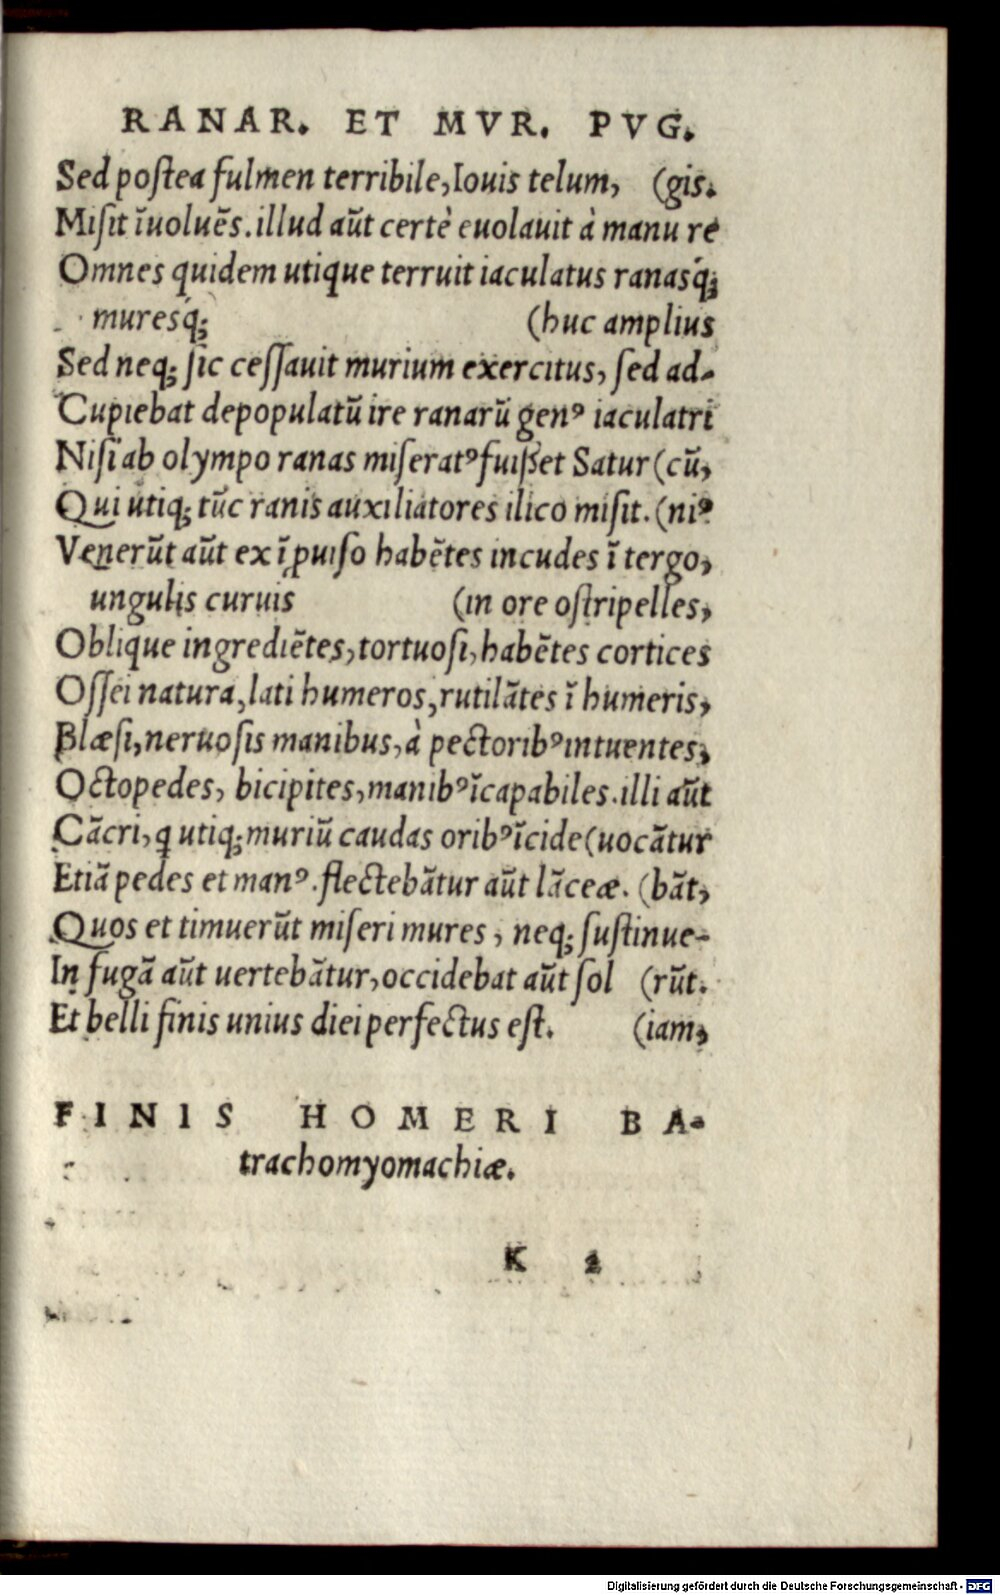 RANAR. ET MVR. PVG.
Sed postea fulmen terribile, Iouis telum, (gis.
Misit ĩuoluẽs. illud aũt certè euolauit à manu re
Omnes quidem utique terruit iaculatus ranasq́;
muresq́; (huc amplius
Sed neq; sic cessauit murium exercitus, sed ad-
Cupiebat depopulatũ ire ranarũ genꝰ iaculatri
Nisi ab olympo ranas miseratꝰ fuisset Satur (cũ,
Qui utiq; tũc ranis auxiliatores ilico misit. (niꝰ
Venerũt aũt ex ĩꝓuiso habẽtes incudes ĩ tergo,
ungulis curuis (in ore ostripelles,
Oblique ingrediẽtes, tortuosi, habẽtes cortices
Ossei natura, lati humeros, rutilãtes ĩ humeris,
Blæsi, neruosis manibus, à pectoribꝰ intuentes,
Octopedes, bicipites, manibꝰ ĩcapabiles. illi aũt
Cãcri, q utiq; muriũ caudas oribꝰ ĩcide (uocãtur
Etiã pedes et manꝰ. flectebãtur aũt lãceæ. (bãt,
Quos et timuerũt miseri mures, neq; sustinue-
In fugã aũt uertebãtur, occidebat aũt sol (rũt.
Et belli finis unius diei perfectus est. (iam,
FINIS HOMERI BA-
trachomyomachiæ.
K 2
Digitalisierung gefördert durch die Deutsche Forschungsgemeinschaft - DFG